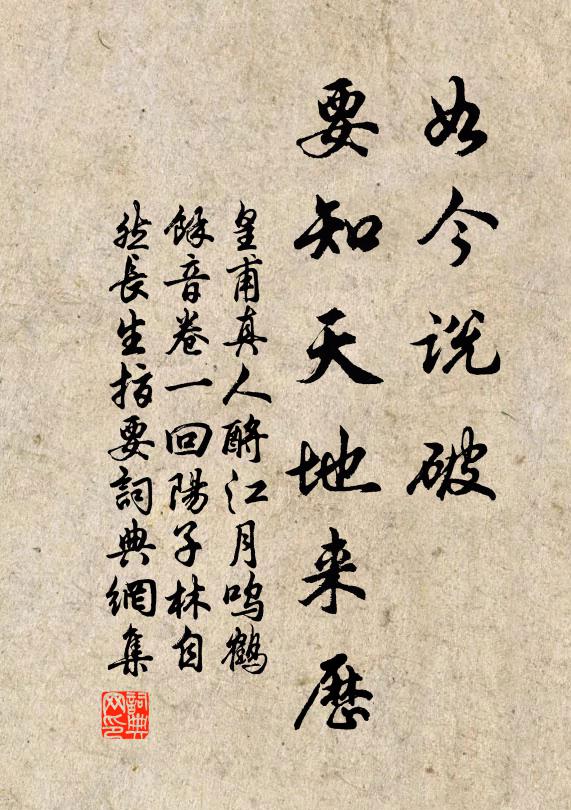 如今说破
要知天地来历
皇甫真人酹江月鸣鹤
馀音卷一回陽子林自
然長生指要詞典網集
詞典网印